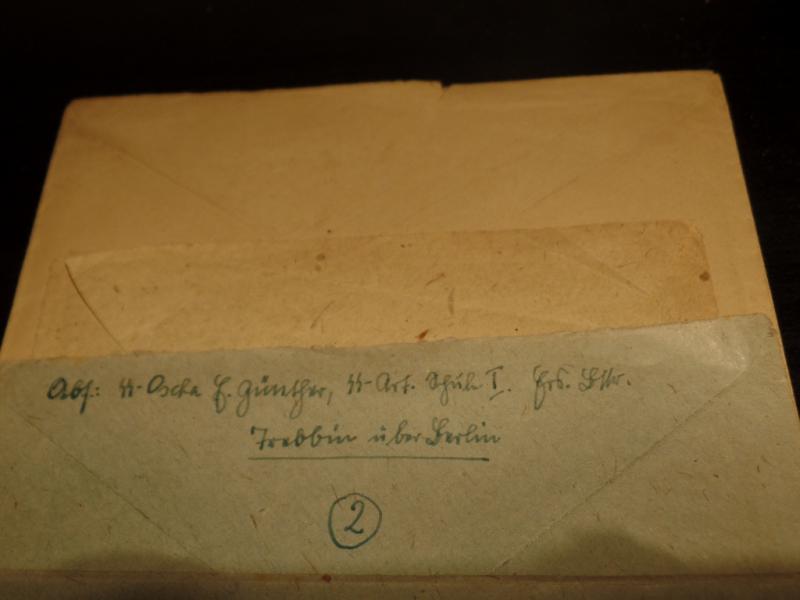 Abs.: SS-Oscha E. Günther, SS-Art. Schule I. Ers. Bttr.
Trebbin über Berlin
2